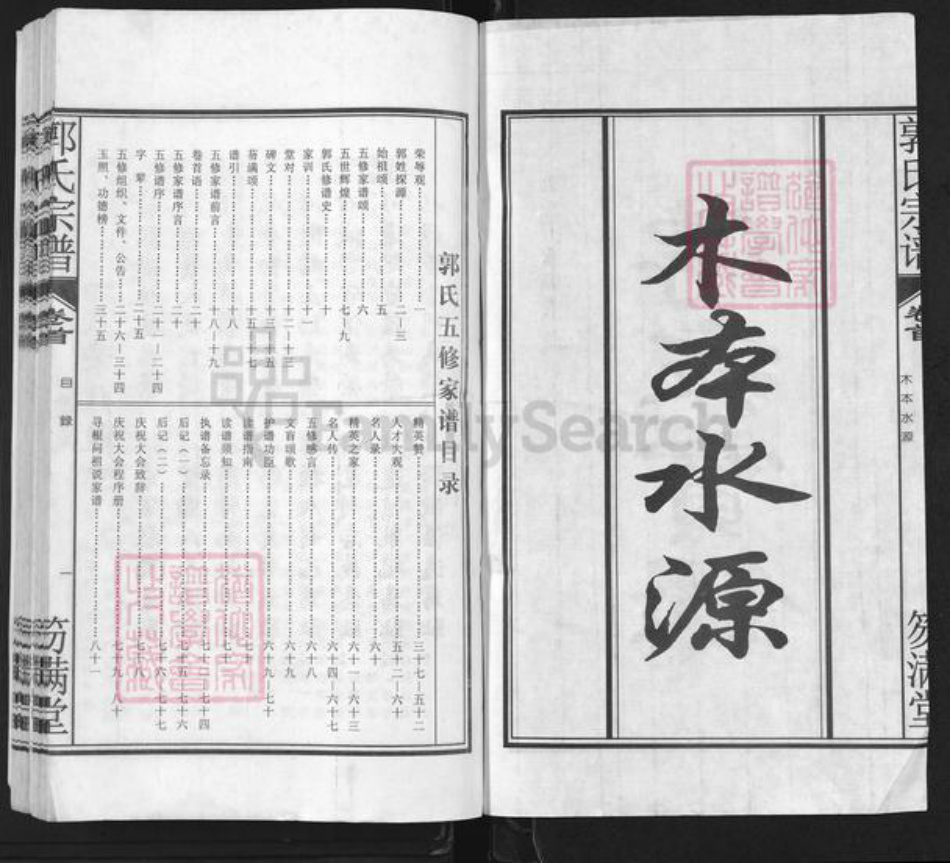 郭氏宗谱
卷首
木本水源
笏满堂
木本水源
郭氏五修家谱目录
荣辱观……………一
郭姓探源……………二—三
始祖颂……………五
五修家谱颂……………六
五世辉煌……………七—九
郭氏修谱史……………十
家训……………十一
堂对……………十二—十三
碑文……………十三—十五
笏满颂……………十五—十七
谱引……………十八
五修家谱前言……………十八—十九
卷首语……………二十
五修家谱序言……………二十
五修谱序……………二十一—二十四
字 辈……………二十五
五修组织、文件、公告……………二十六—三十四
玉照、功德榜……………三十五
精英赞……………三十七—五十二
人才大观……………五十二—六十
名人录……………六十
精英之家……………六十一—六十三
名人传……………六十四—六十七
五修感言……………六十八
文盲颂歌……………六十九
护谱功臣……………六十九—七十
读谱指南……………七十
读谱须知……………七十
执谱备忘录……………七十二—七十四
后记(一)……………七十五—七十六
后记(二)……………七十六—七十七
庆祝大会致辞……………七十八
庆祝大会程序册……………七十九—八十
寻根问祖说家谱……………八十一
郭氏宗谱
卷首
目录
一
笏满堂
FamilySearch